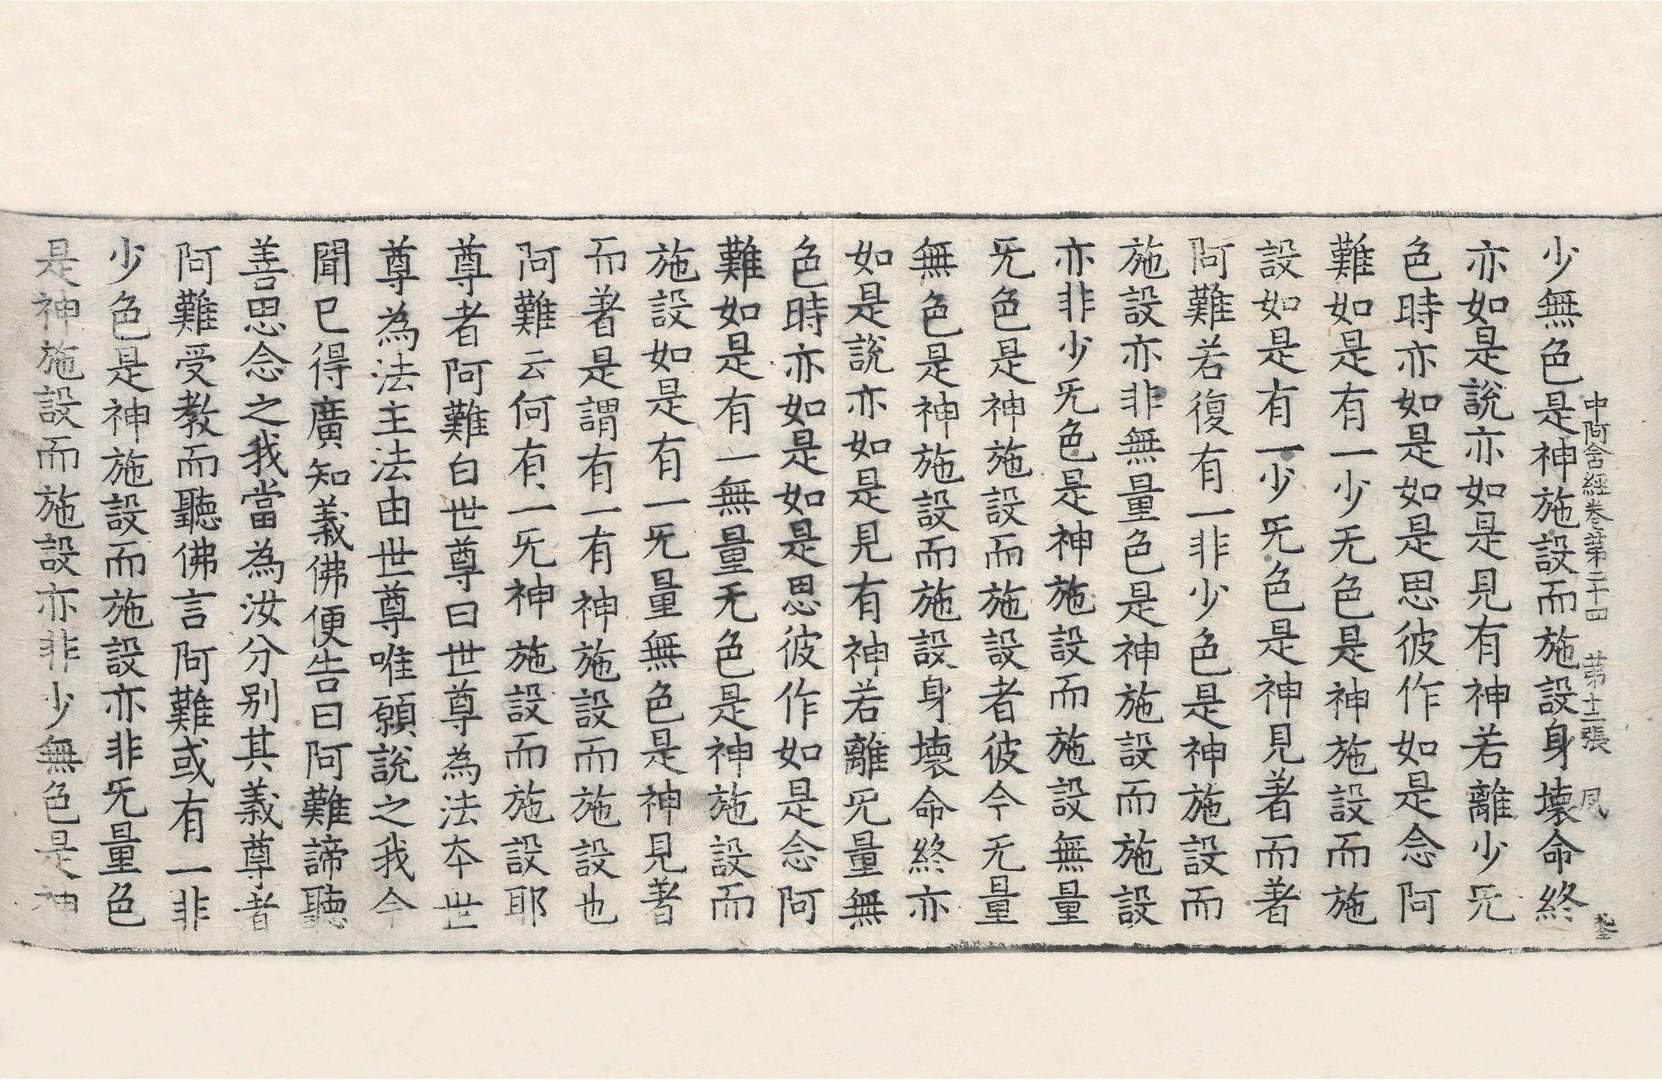 中阿含經卷第二十四 第十二張 夙
少無色是神施設而施設身壞命終
亦如是說亦如是見有神若離少旡
色時亦如是如是思彼作如是念阿
難如是有一少无色是神施設而施
設如是有一少旡色是神見著而著
阿難若復有一非少色是神施設而
施設亦非無量色是神施設而施設
亦非少旡色是神施設而施設無量
旡色是神施設而施設者彼今无量
無色是神施設而施設身壞命終亦
如是說亦如是見有神若離旡量無
色時亦如是如是思彼作如是念阿
難如是有一無量无色是神施設而
施設如是有一旡量無色是神見著
而著是謂有一有神施設而施設也
阿難云何有一旡神施設而施設耶
尊者阿難白世尊曰世尊為法本世
尊為法主法由世尊唯願說之我今
聞已得廣知義佛便告曰阿難諦聽
善思念之我當為汝分別其義尊者
阿難受教而聽佛言阿難或有一非
少色是神施設而施設亦非旡量色
是神施設而施設亦非少無色是神